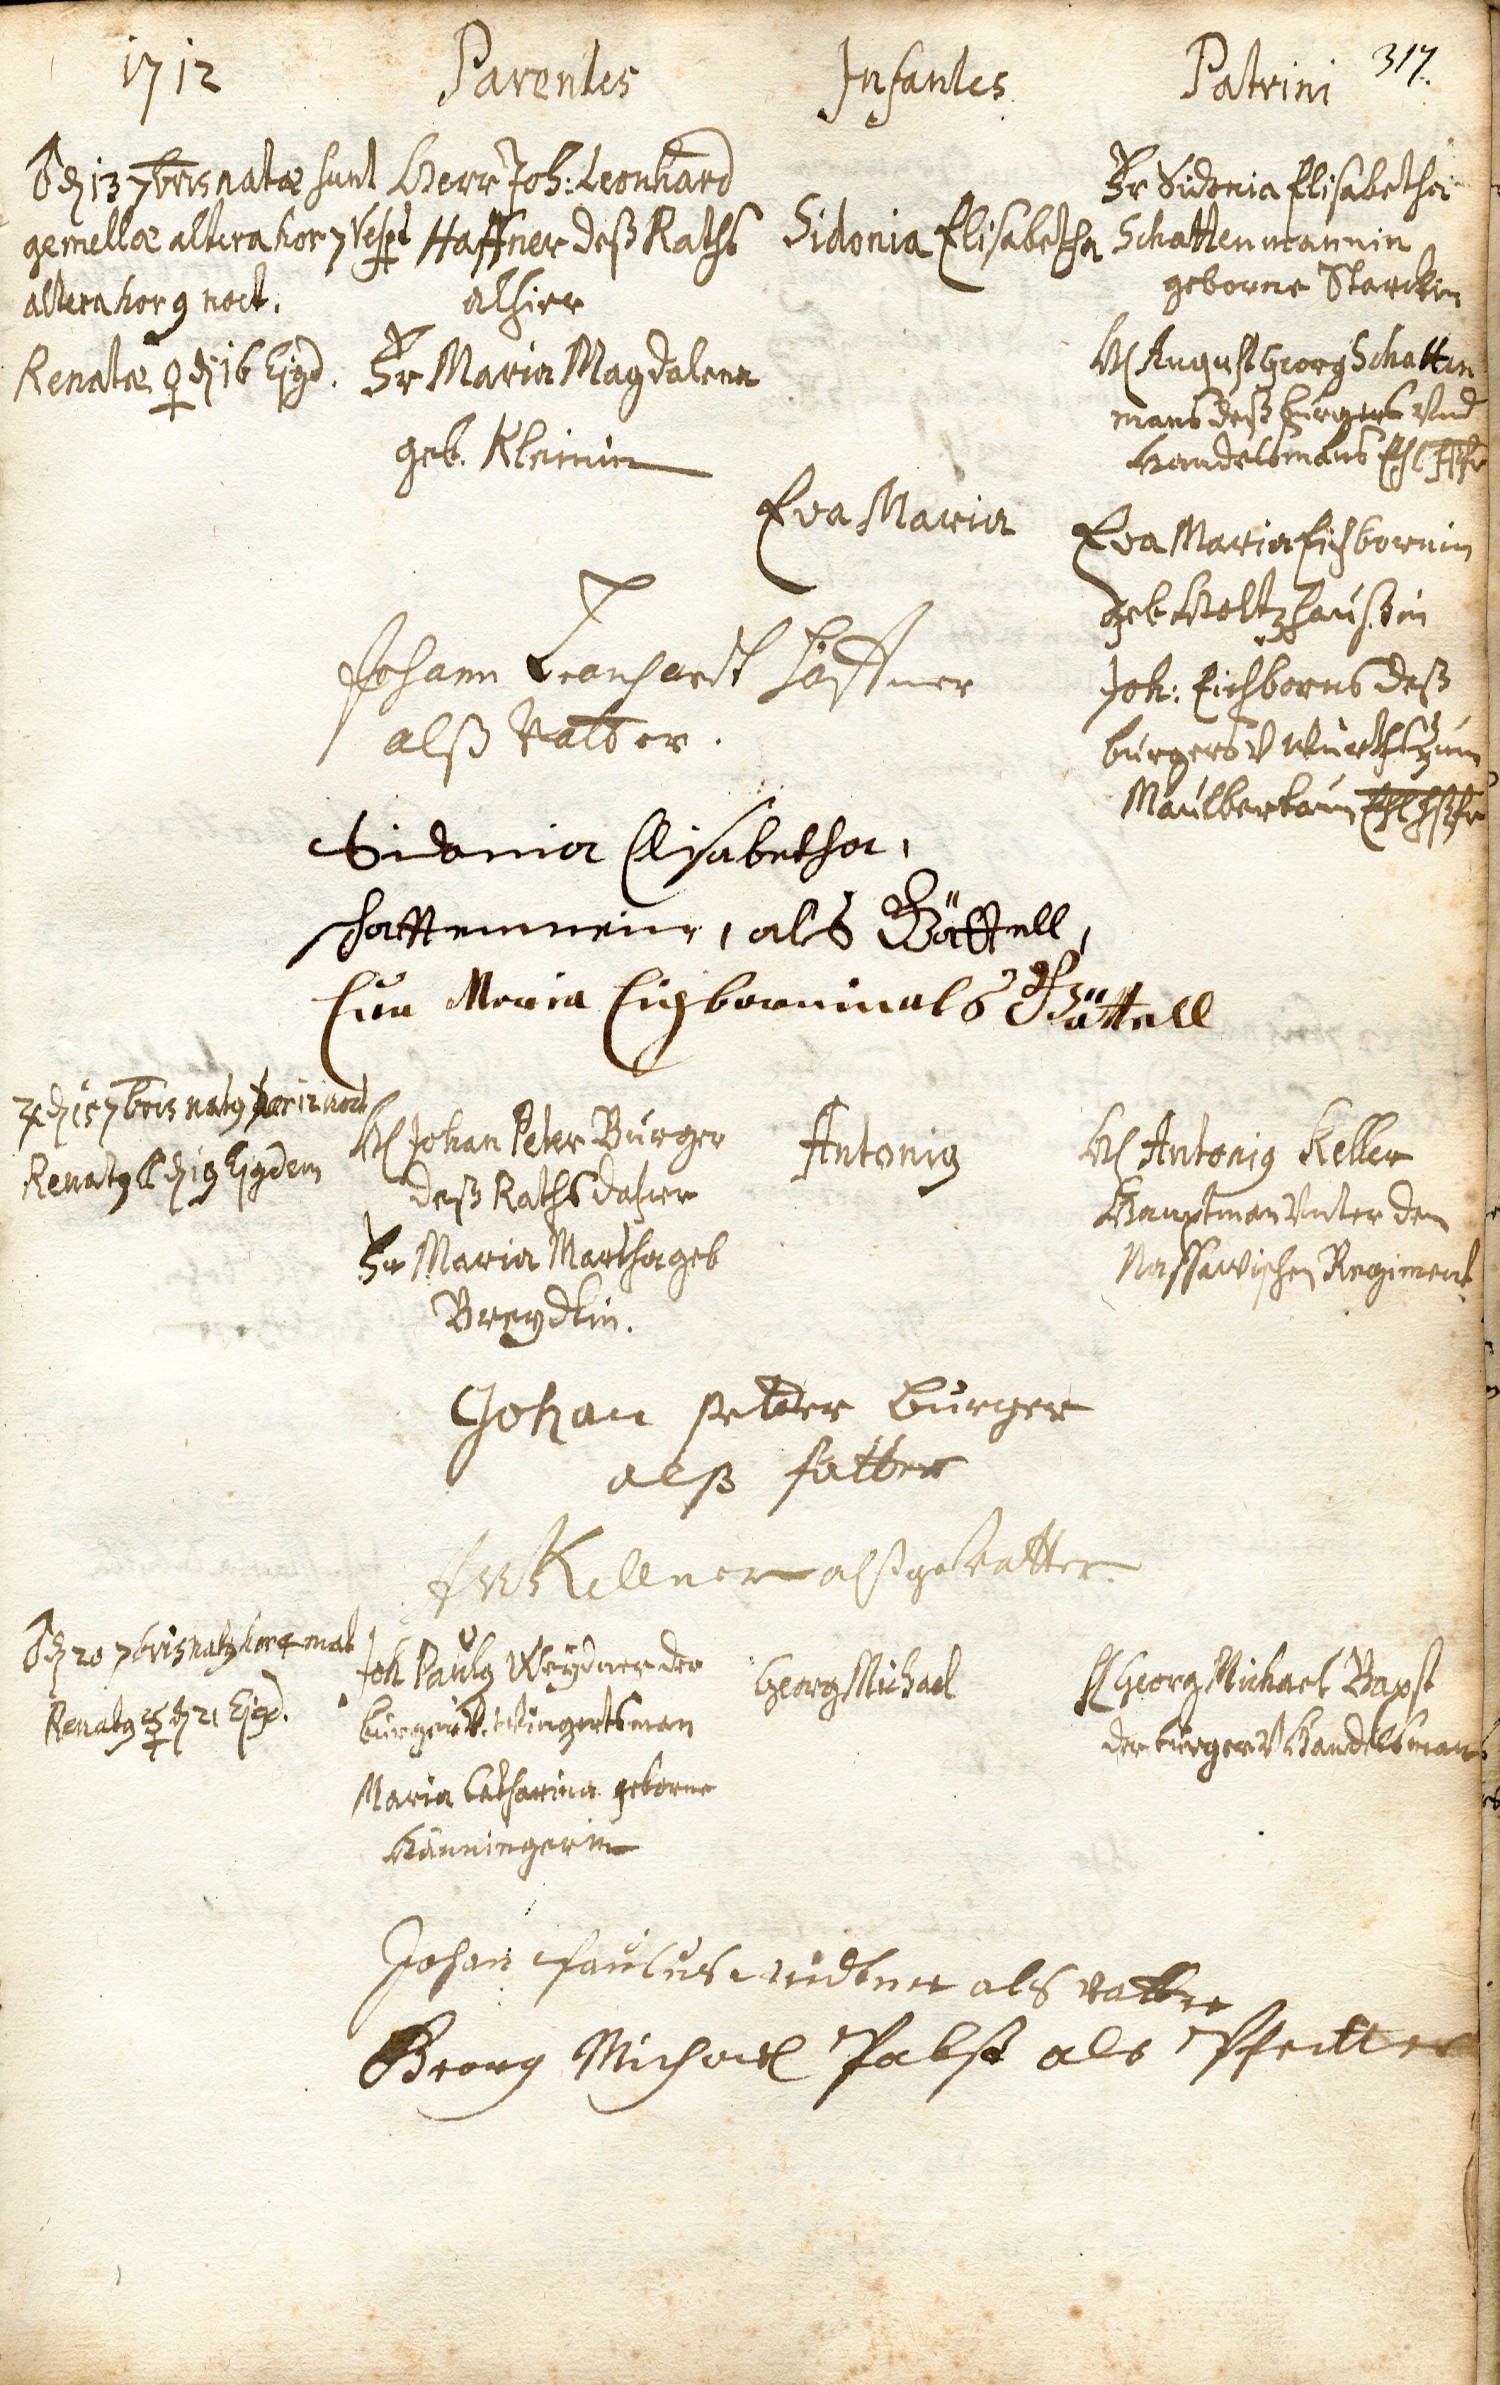 1712 Parentes Infantes Patrini 317.
♂ d 13 7bris natæ sunt
gemellæ altera hor 7 Vesp
altera hor 9 noct.
Renatæ ♀ d 16 Ejqd.
Herr Joh: Leonhard
Haffner deß Raths
alhier
Fr Maria Magdalena
geb. Kleinin
Sidonia Elisabetha
Eva Maria
Fr Sidonia Elisabetha
Schattenmannin
geborne Starckin
H August Georg Schatten
mans deß burgers Und
Handelsmans Ehl
Eva Maria Eichbornin
geb Holtzhaußin
Joh: Eichborns deß
burgers V Würths Zum
Maulberbaum
Johann Leonhardt Haffner
alß Vatter.
Sidonia Elisabetha,
schattemnenin, als Göttell,
Eva Maria Eichbornin als Göttell
♃ d 15 7bris natq hor 12 noct
Renatq ☾ d 19 Ejqdem
H Johan Peter Burger
deß Raths dahier
Fr Maria Martha geb
Breydtin.
Antoniq
H Antoniq Keller
Hauptman Unter dem
Nassawischen Regiment
Johan petter burger
alß fatter
Kellner alß gevatter.
♂ d 20 7bris natq hor 4 mat
Renatq ☿ d 21 Ejqd.
Joh Paulq Weydner der
burger V. Wingertsman
Maria Catharina geborne
Hänningerin
Georg Michael
H Georg Michael Bapst
der burger V Handelsman
Johan Paulus weidner als vatter
Georg Michael Pabst als Pfetter